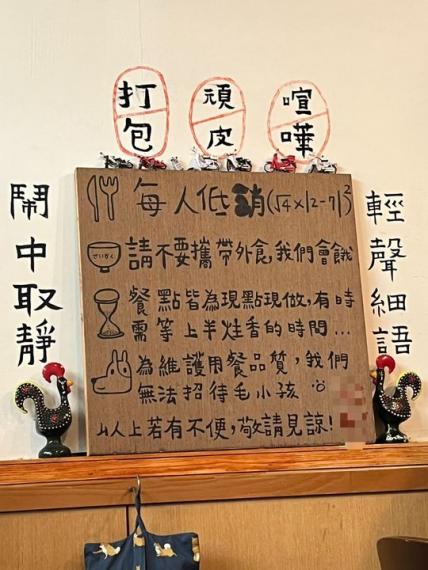 打包
頑皮
喧嘩
鬧中取靜
輕聲細語
每人低消(√4×|2-7|)²
請不要攜帶外食,我們會餓
餐點皆為現點現做,有時
需等上半炷香的時間...
為維護用餐品質,我們
無法招待毛小孩
以上若有不便,敬請見諒!